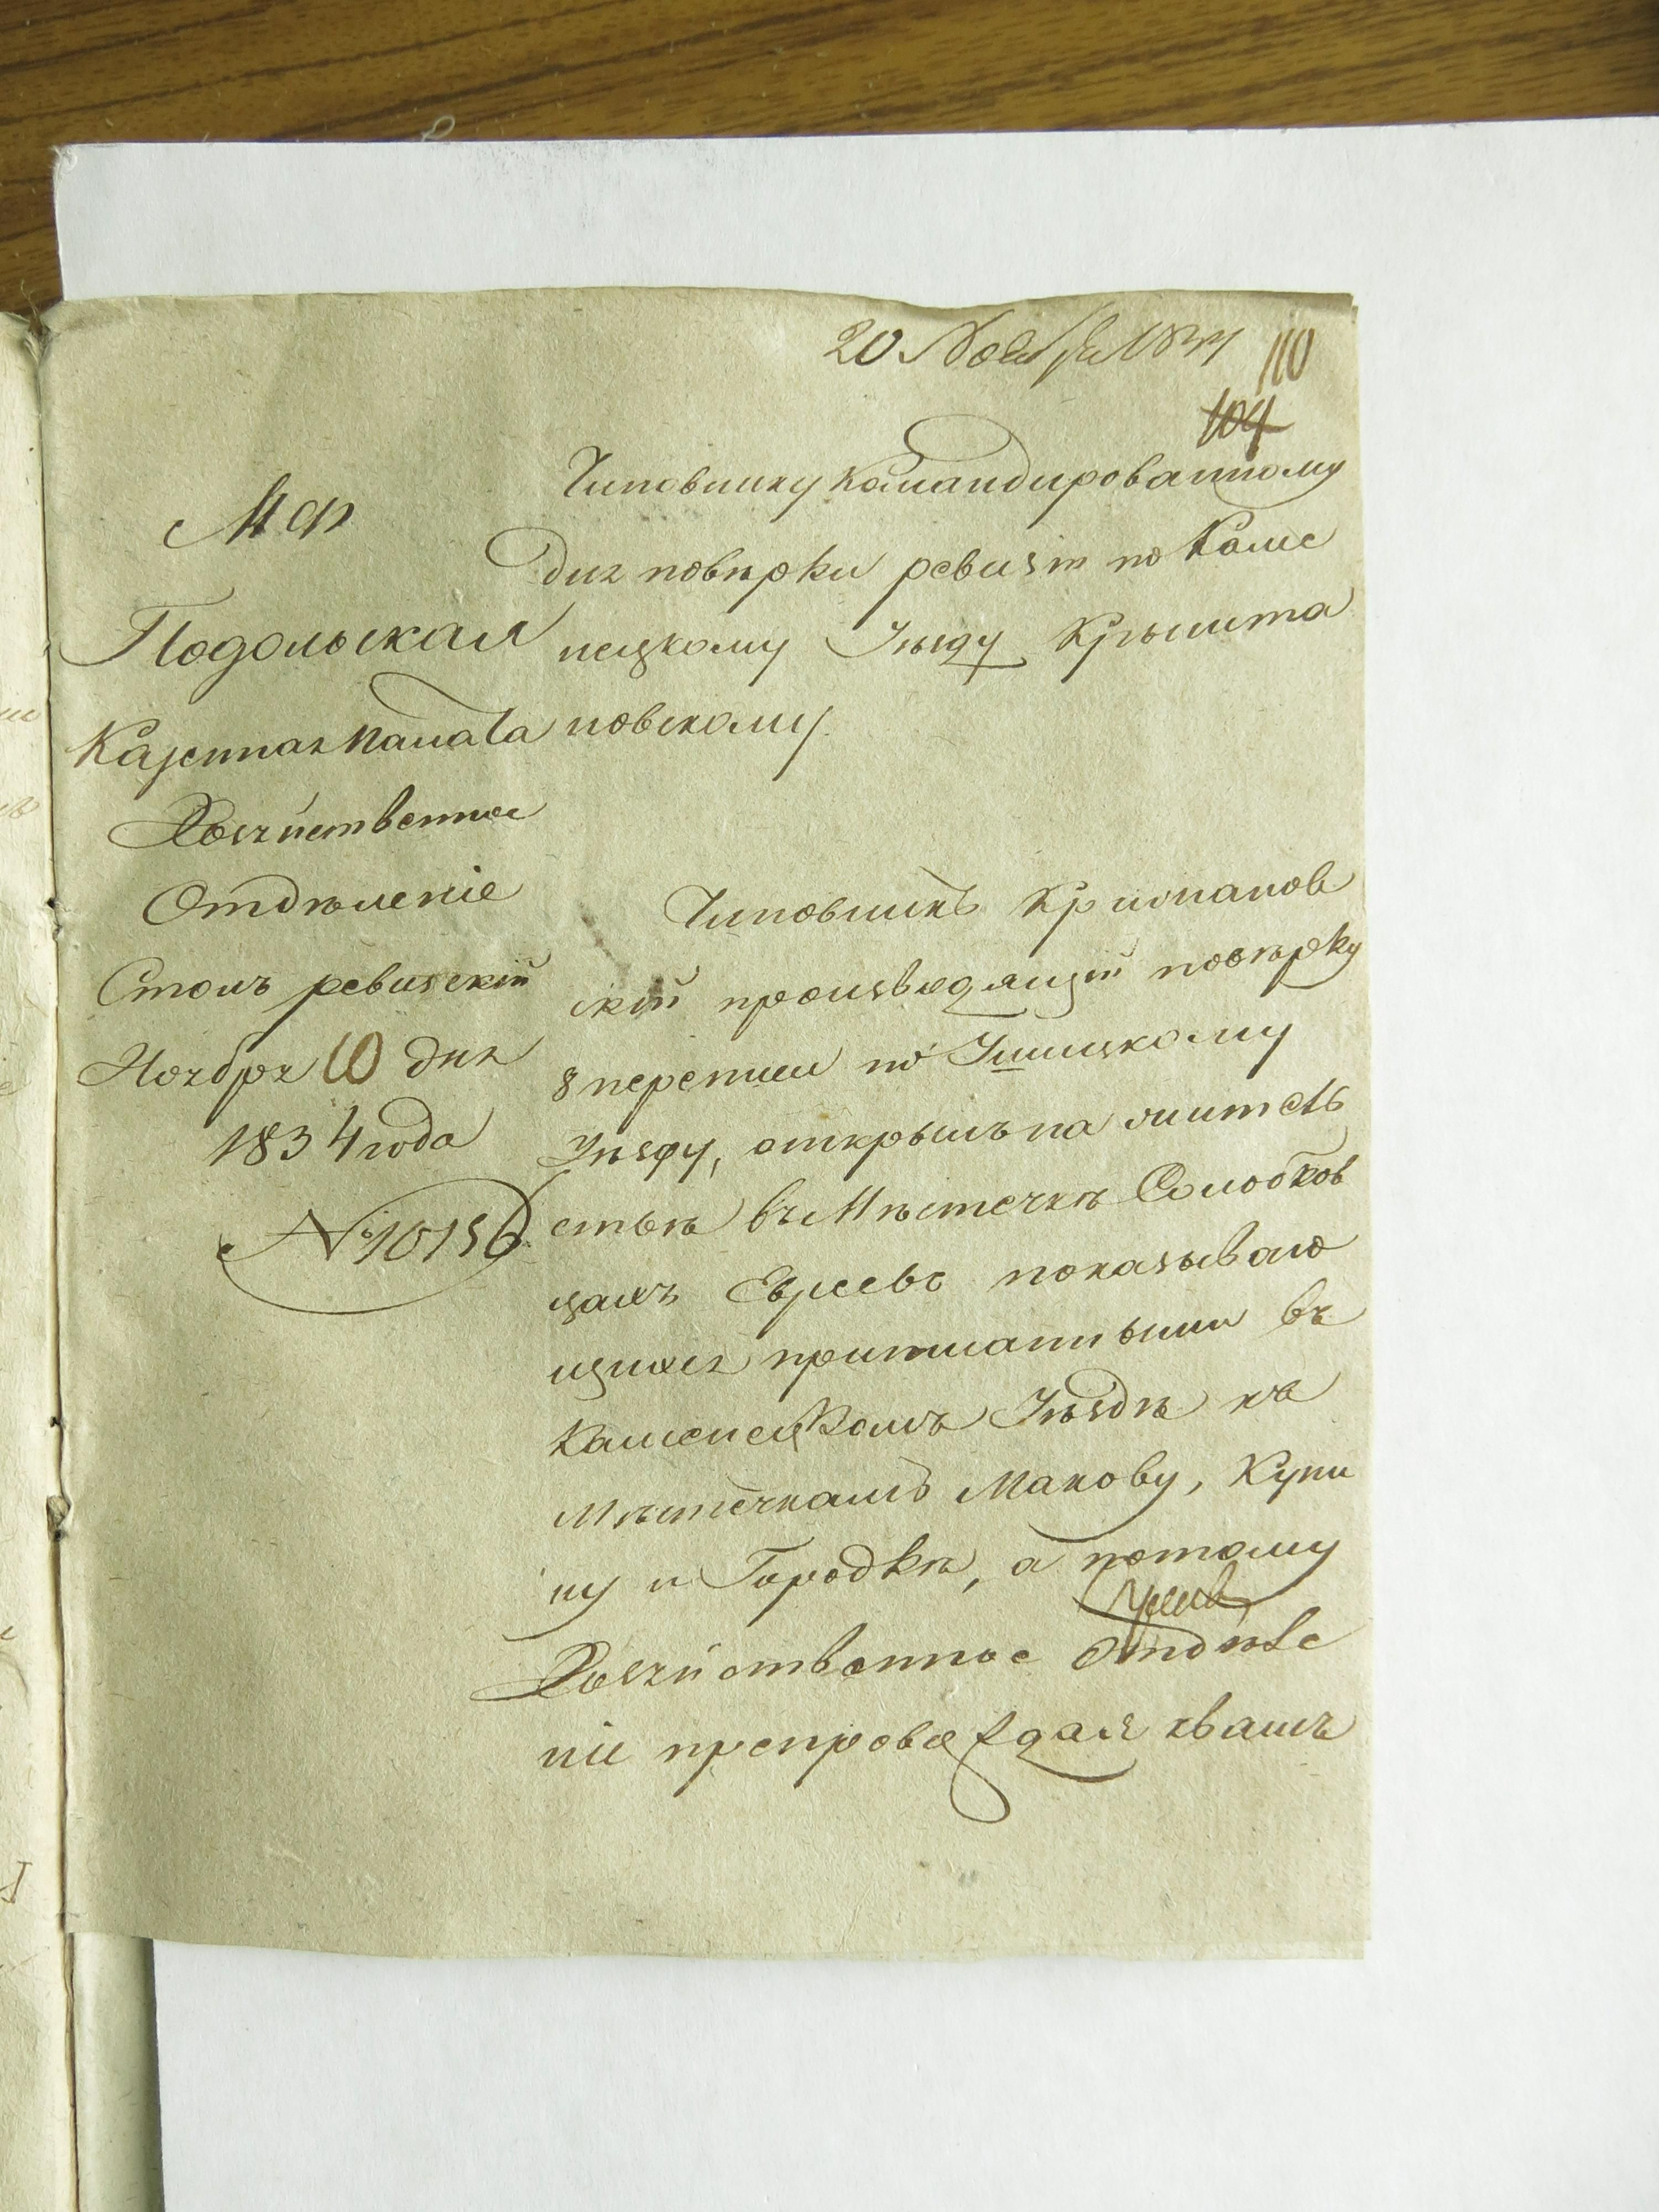 20 Ноября 1834
110
104
М Ф
Подольская
Казенная палата
Хозяйственное
Отделеніе
Столъ ревизскій
Ноября 10 дня
1834 года
№ 10156
Чиновнику командированному
для повѣрки ревизіи по Каме
нецкому Уѣзду
новскому.
Чиновникъ
скій производящій повѣрку
8 переписи по Ушицкому
Уѣзду, открылъ на жительс
ствѣ въ Мѣстечкѣ Солобков
цахъ Евреевъ показываю
щихся приписанными въ
Каменецкомъ Уѣздѣ къ
Мѣстечкамъ Макову, Купи
ну и Городкѣ, а потому
Хозяйственное Отдѣле
ніе препровождая къ вамъ